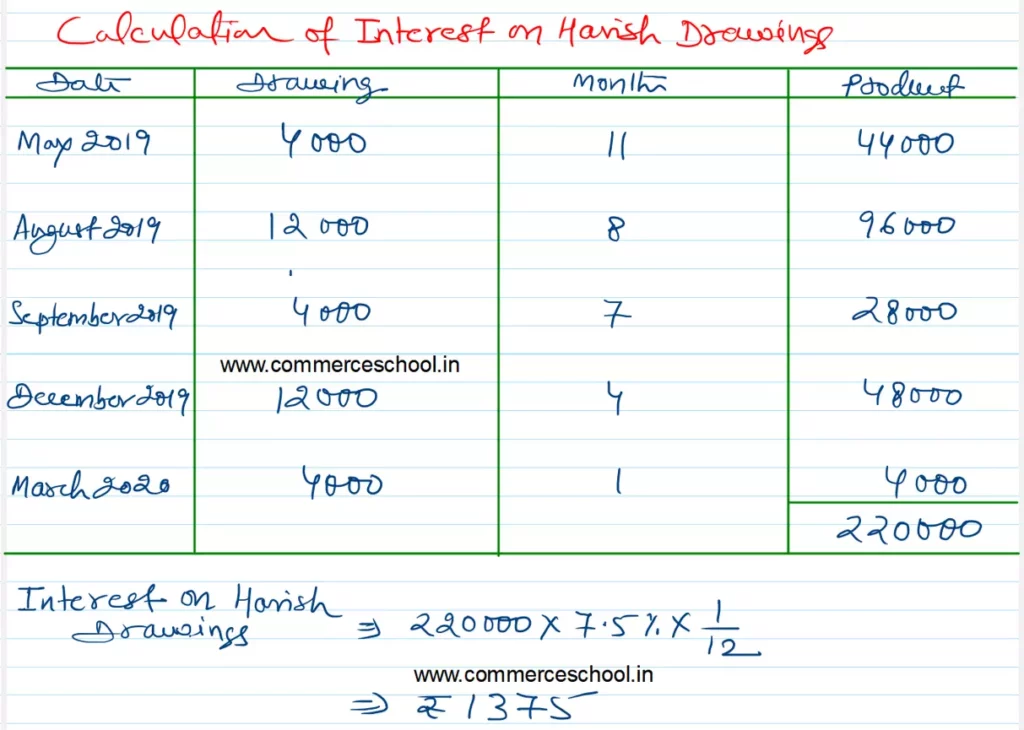 Calculation of Interest on Harish Drawings
Date Drawing Months Product
May 2019 4000 11 44000
August 2019 12000 8 96000
September 2019 4000 7 28000
www.commerceschool.in
December 2019 12000 4 48000
March 2020 4000 1 4000
220000
Interest on Harish
Drawings ⇒ 220000 × 7.5% × 1/12
www.commerceschool.in
⇒ ₹ 1375